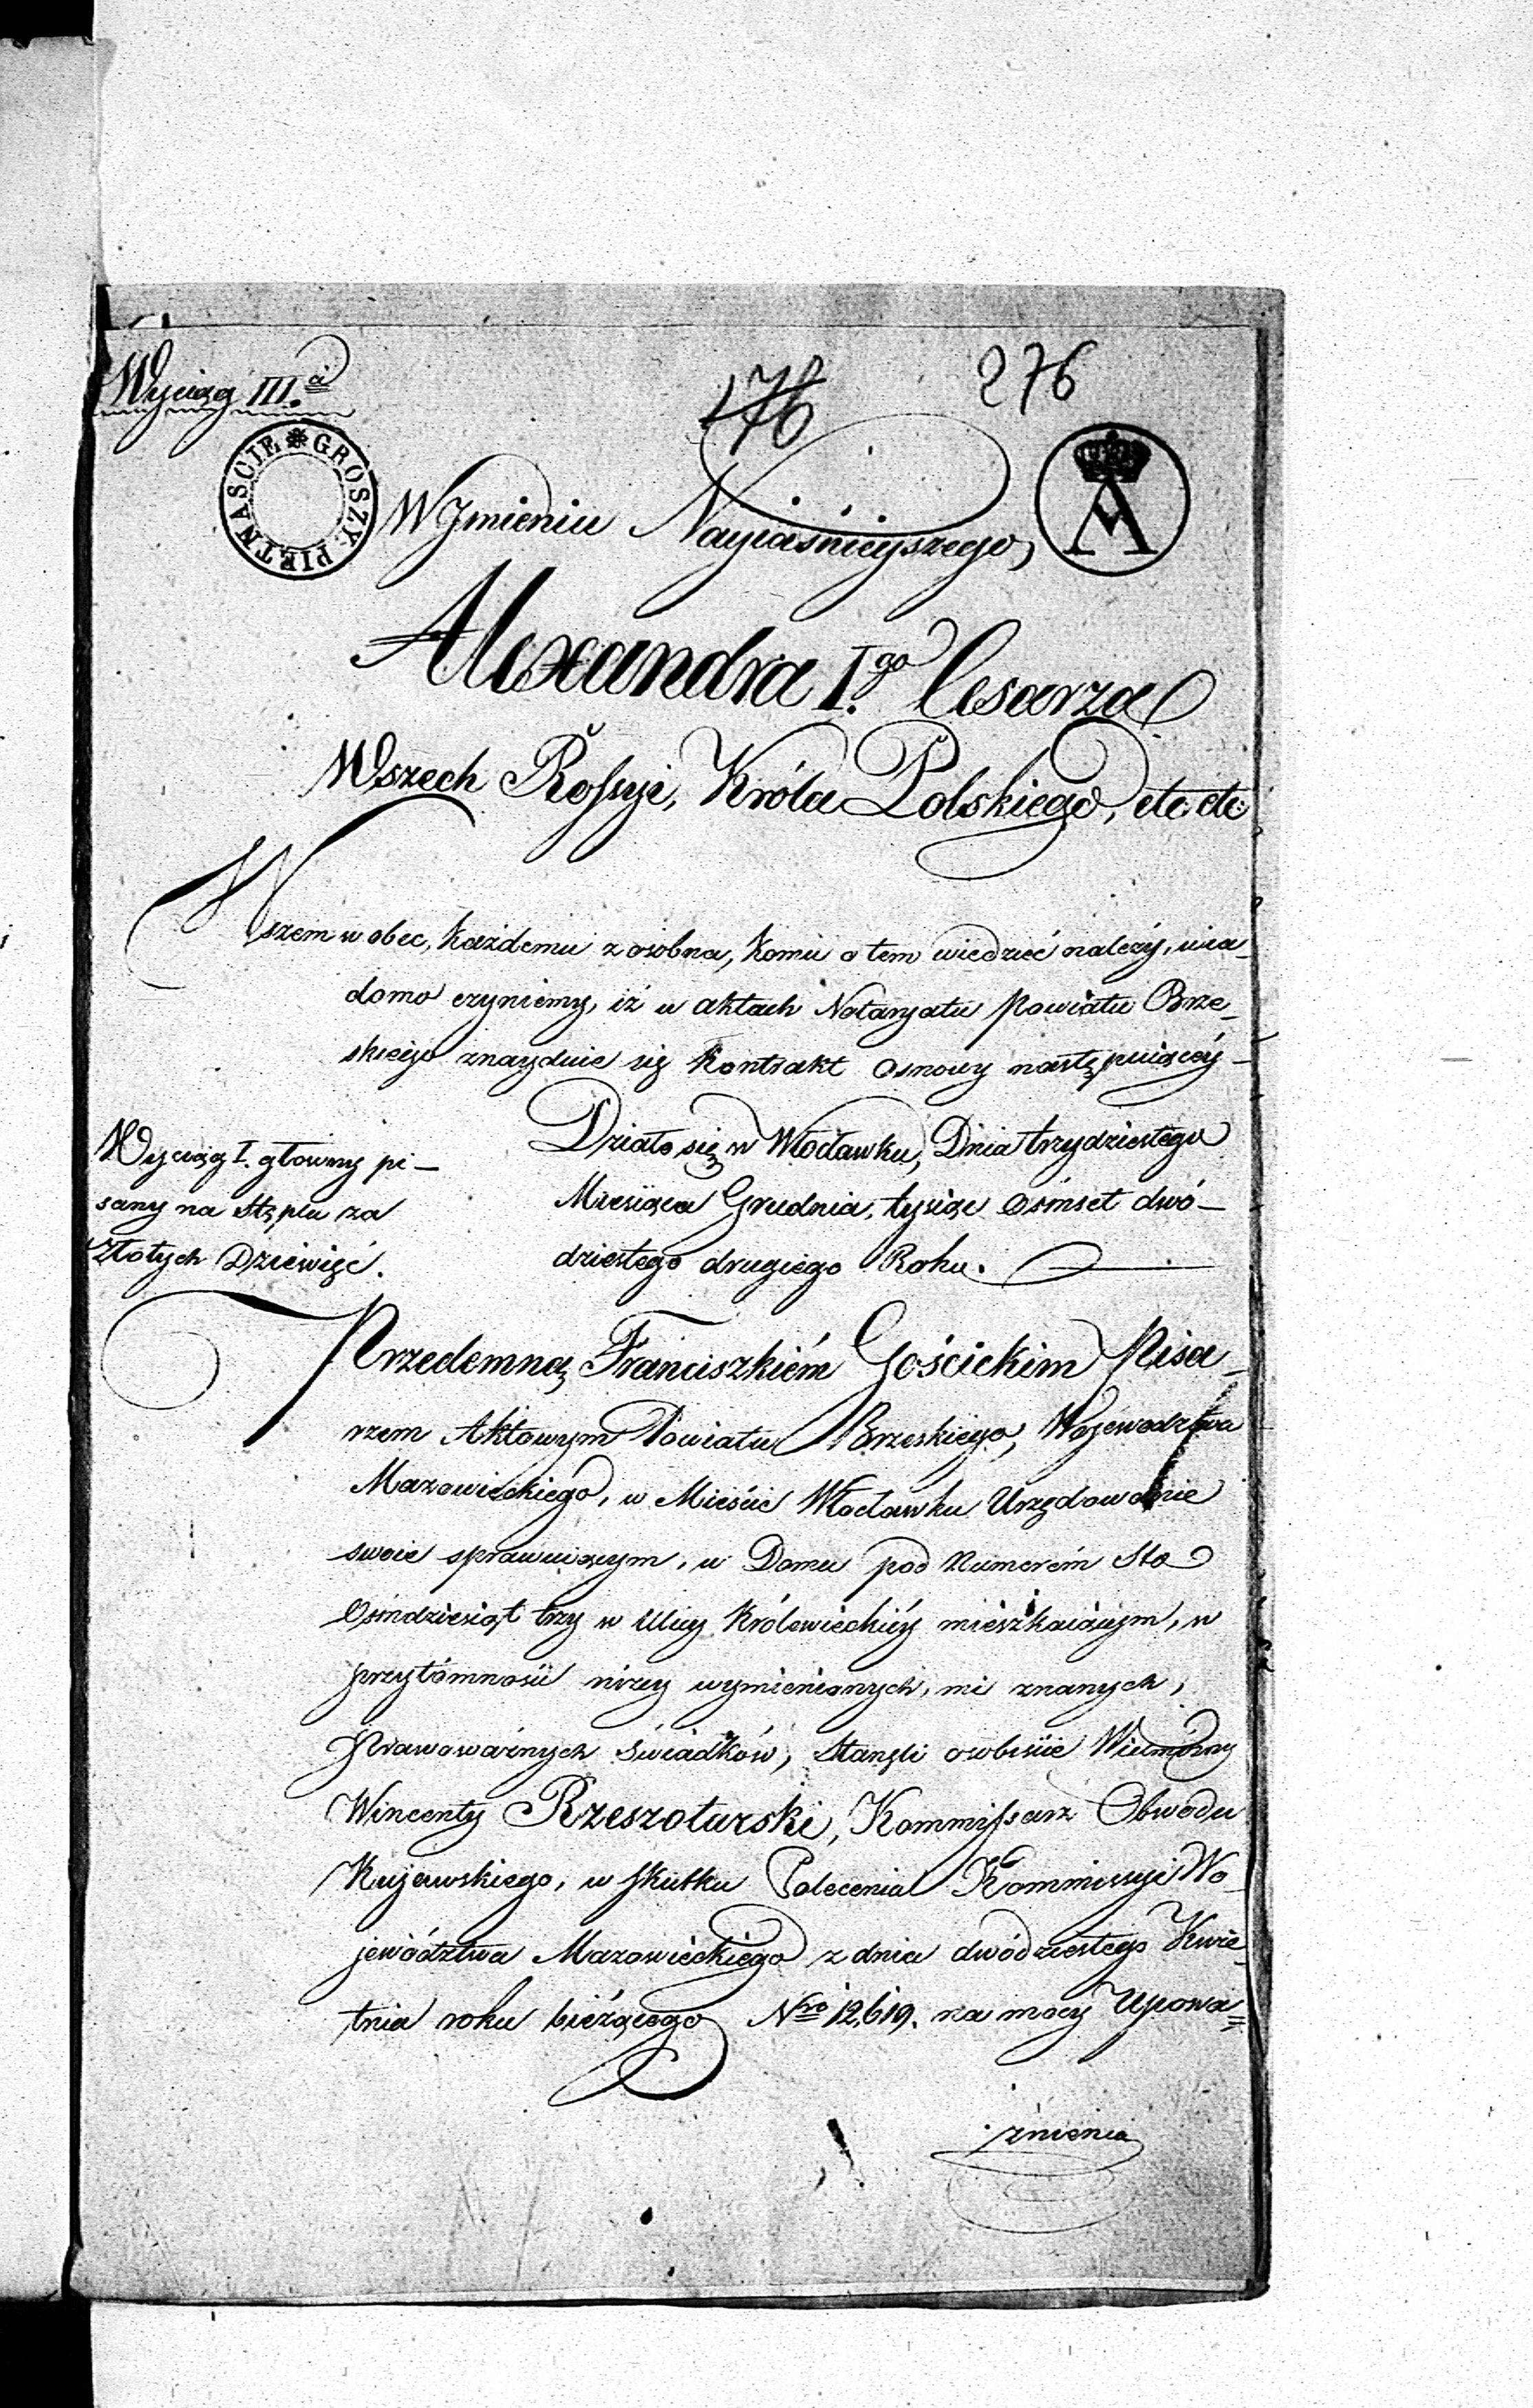 Wyciąg III.ci
176
276
GROSZY PIĘTNAŚCIE
W Jmieniu Nayiaśnieyszego,
Alexandra I.go Cesarza
Wszech Rossyi, Króla Polskiego, etc. etc.
Wszem w obec, każdemu z osobna, komu o tem wiedzieć należy, wia-
domo czyniemy, iż w aktach Notaryatu Powiatu Brze-
skiego znayduie się Kontrakt osnowy następuiącéy -
Działo się w Włocławku, Dnia trzydziestego
Miesiąca Grudnia, tysiąc ośmset dwó-
dziestego drugiego Roku.
Wyciąg I. główny pi-
sany na Stęplu za
Złotych Dziewięć.
Przedemną Franciszkiém Gościckim Pisa-
rzem Aktowym Powiatu Brzeskiego, Wojewodztwa
Mazowieckiego, w Mieście Włocławku Urzędowanie
swoie sprawuiącym, w Domu pod Numerém Sto
Ośmdziesiąt trzy w Ulicy Królewieckiéy mieszkaiącym, w
przytomności niżey wymienionych, mi znanych,
Prawoważnych świadków, Stanęli osobiście Wielmożny
Wincenty Rzeszotarski, Kommissarz Obwodu
Kujawskiego, w skutku Polecenia Kommissyi Wo-
jewództwa Mazowieckiego z dnia dwódziestego Kwie-
tnia roku bieżącego Nro 12,619. na mocy Upowa=
żnienia